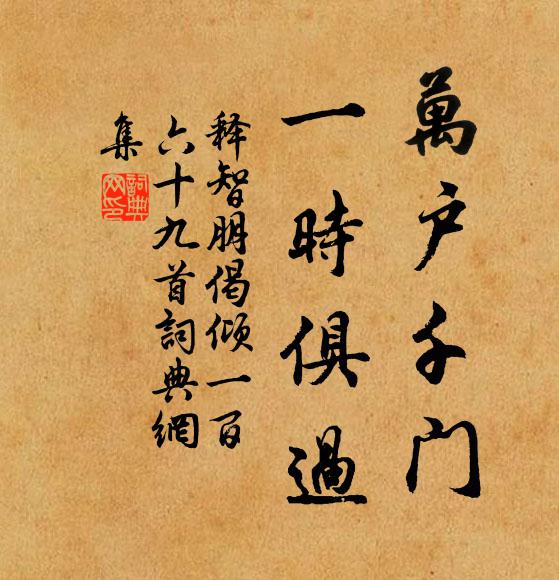 萬户千门
一時俱過
释智朋偈倾一百
六十九首詞典網
集
詞典